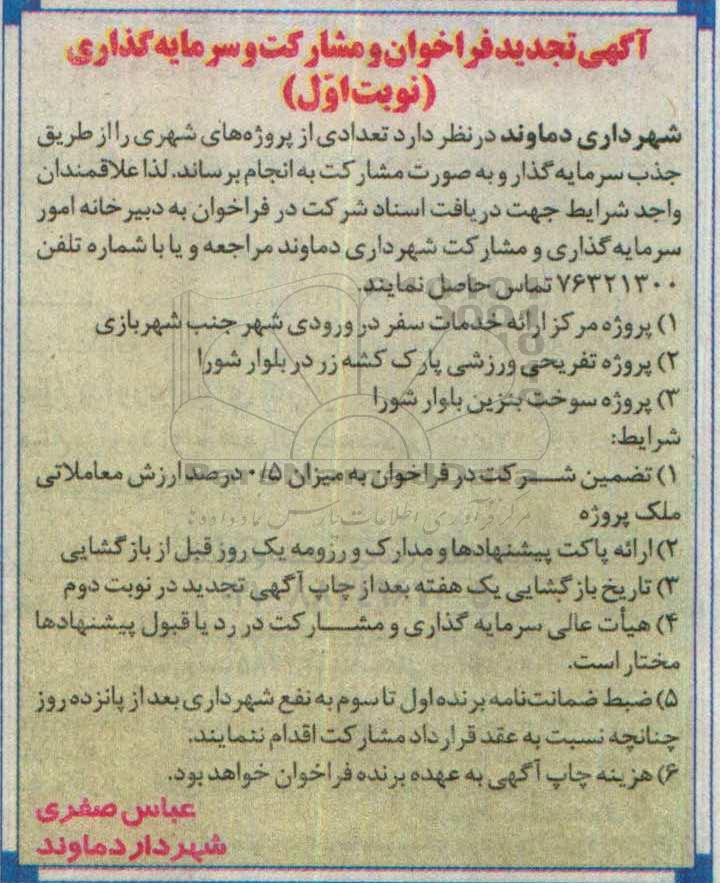 آگهی تجدید فراخوان و مشارکت و سرمایه گذاری
(نوبت اوّل)
شهرداری دماوند در نظر دارد تعدادی از پروژه‌های شهری را از طریق
جذب سرمایه گذار و به صورت مشارکت به انجام برساند. لذا علاقمندان
واجد شرایط جهت دریافت اسناد شرکت در فراخوان به دبیرخانه امور
سرمایه گذاری و مشارکت شهرداری دماوند مراجعه و یا با شماره تلفن
۷۶۳۲۱۳۰۰ تماس حاصل نمایند.
۱) پروژه مرکز ارائه خدمات سفر در ورودی شهر جنب شهربازی
۲) پروژه تفریحی ورزشی پارک کشه زر در بلوار شورا
۳) پروژه سوخت بنزین بلوار شورا
شرایط:
۱) تضمین شرکت در فراخوان به میزان ۰/۵ درصد ارزش معاملاتی
ملک پروژه
۲) ارائه پاکت پیشنهادها و مدارک و رزومه یک روز قبل از بازگشایی
۳) تاریخ بازگشایی یک هفته بعد از چاپ آگهی تجدید در نوبت دوم
۴) هیأت عالی سرمایه گذاری و مشارکت در رد یا قبول پیشنهادها
مختار است.
۵) ضبط ضمانت‌نامه برنده اول تا سوم به نفع شهرداری بعد از پانزده روز
چنانچه نسبت به عقد قرارداد مشارکت اقدام ننمایند.
۶) هزینه چاپ آگهی به عهده برنده فراخوان خواهد بود.
عباس صفری
شهردار دماوند